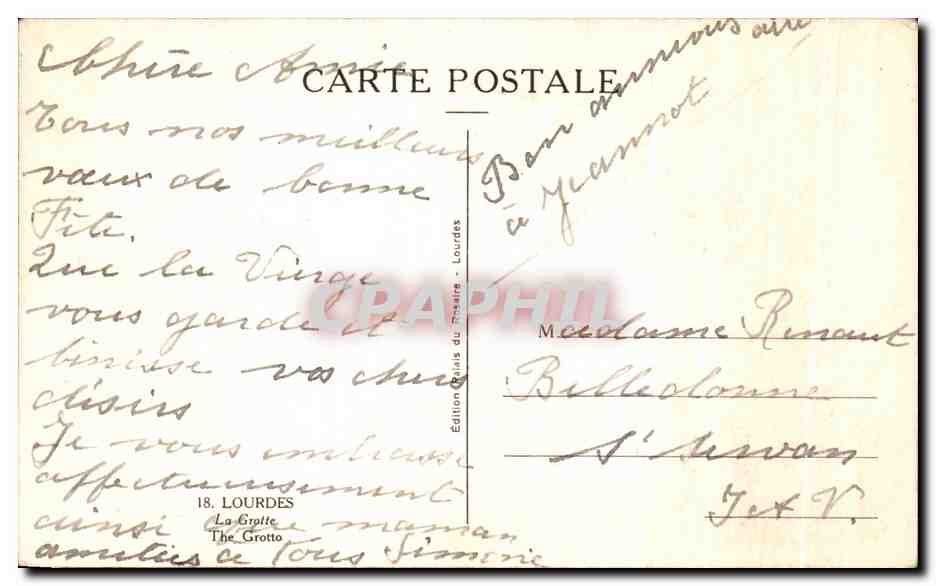 CARTE POSTALE
Chère Amie
Tous nos meilleurs
vœux de bonne
Fête.
Que la Vierge
vous garde et
bénisse vos chers
désirs
Je vous embrasse
affectueusement
ainsi que maman
amitiés à Tous Simone
18. LOURDES
La Grotte
The Grotto
Edition Palais du Rosaire - Lourdes
CPAPHIL
Bon anniversaire
à Jeannot
Madame Renaut
Belledonne
St Servan
I et V.